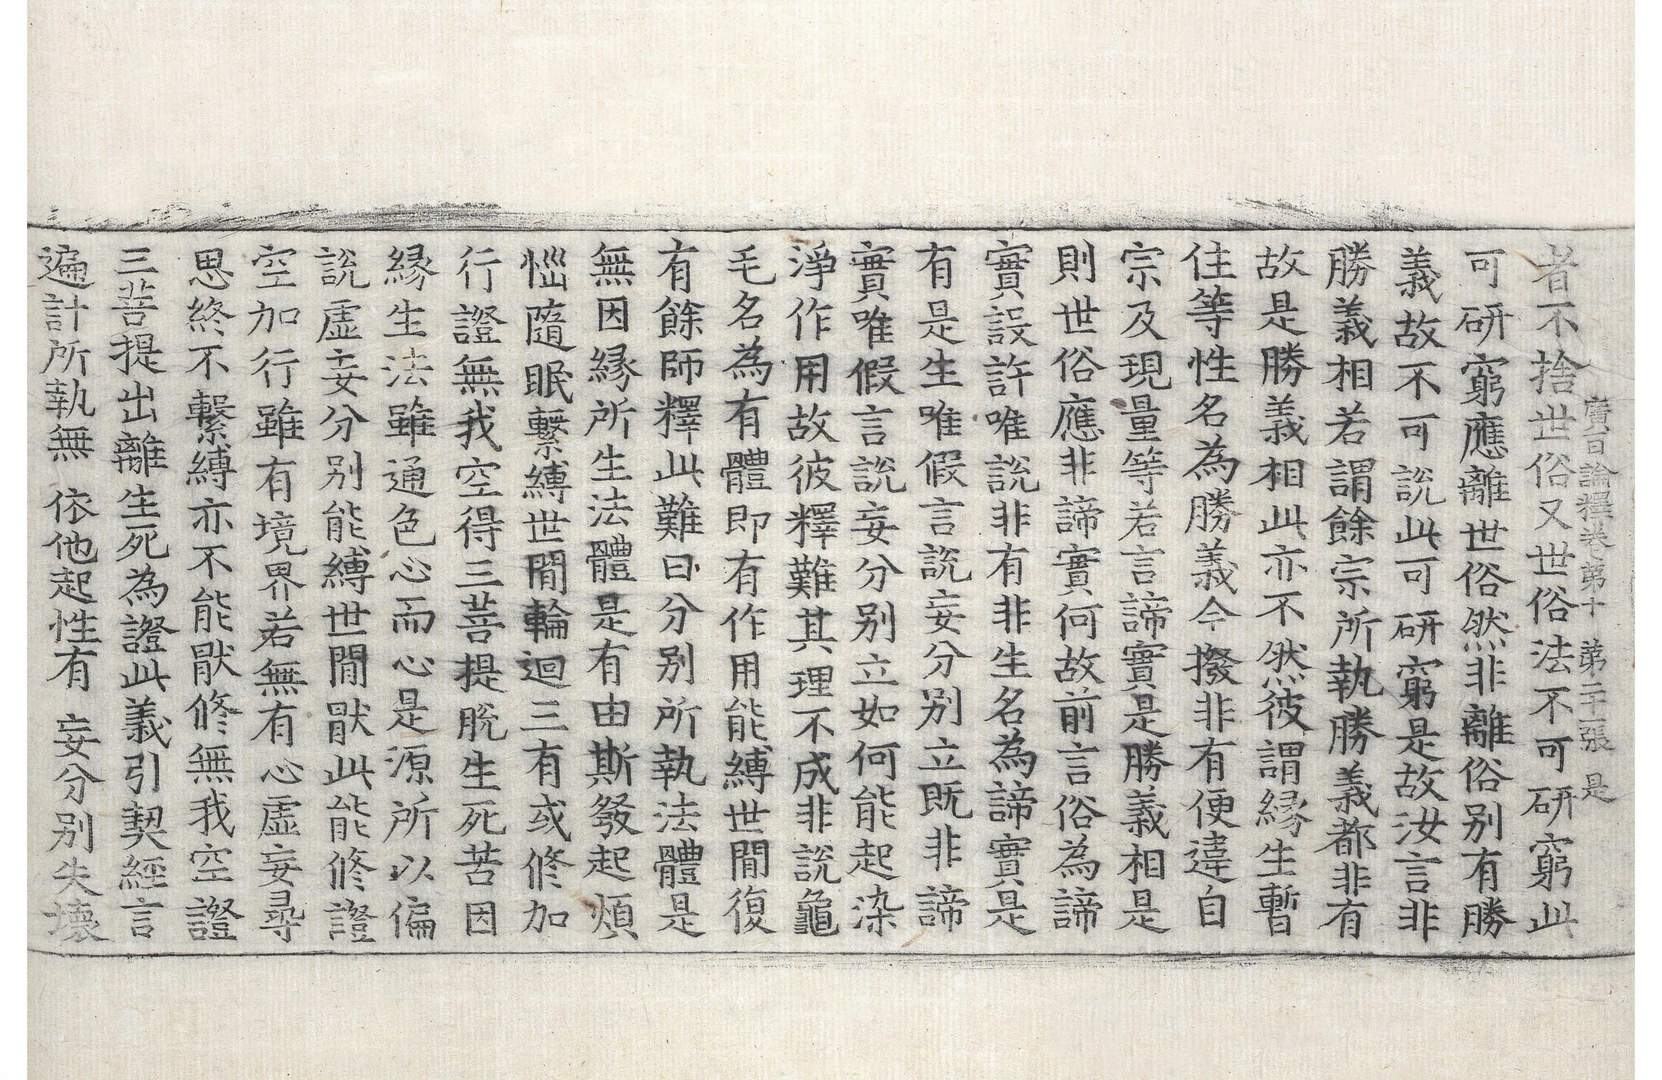 廣百論釋卷第十 第二十二張 是
者不捨世俗又世俗法不可研窮此
可研窮應離世俗然非離俗别有勝
義故不可説此可研窮是故汝言非
勝義相若謂餘宗所執勝義都非有
故是勝義相此亦不然彼謂縁生暫
住等性名為勝義今撥非有便違自
宗及現量等若言諦實是勝義相是
則世俗應非諦實何故前言俗為諦
實設許唯説非有非生名為諦實是
有是生唯假言説妄分别立既非諦
實唯假言説妄分别立如何能起染
淨作用故彼釋難其理不成非說龜
毛名為有體即有作用能縛世間復
有餘師釋此難曰分别所執法體是
無因縁所生法體是有由斯發起煩
惱隨眠繫縛世間輪迴三有或修加
行證無我空得三菩提脫生死苦因
縁生法雖通色心而心是源所以偏
説虛妄分别能縛世間猒此能修證
空加行雖有境界若無有心虛妄尋
思終不繫縛亦不能猒修無我空證
三菩提出離生死為證此義引契經言
遍計所執無 依他起性有 妄分别失壞